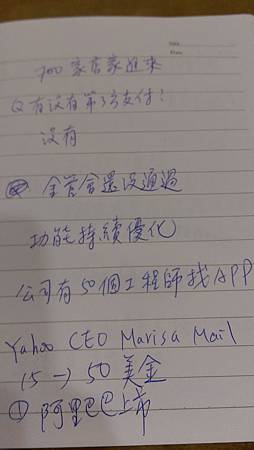 700家店家進來
Q有沒有第3方支付?
沒有
金管會還沒通過
功能持續優化
公司有50個工程師找APP
Yahoo CEO Marisa Mail
15 → 50 美金
① 阿里巴巴上市